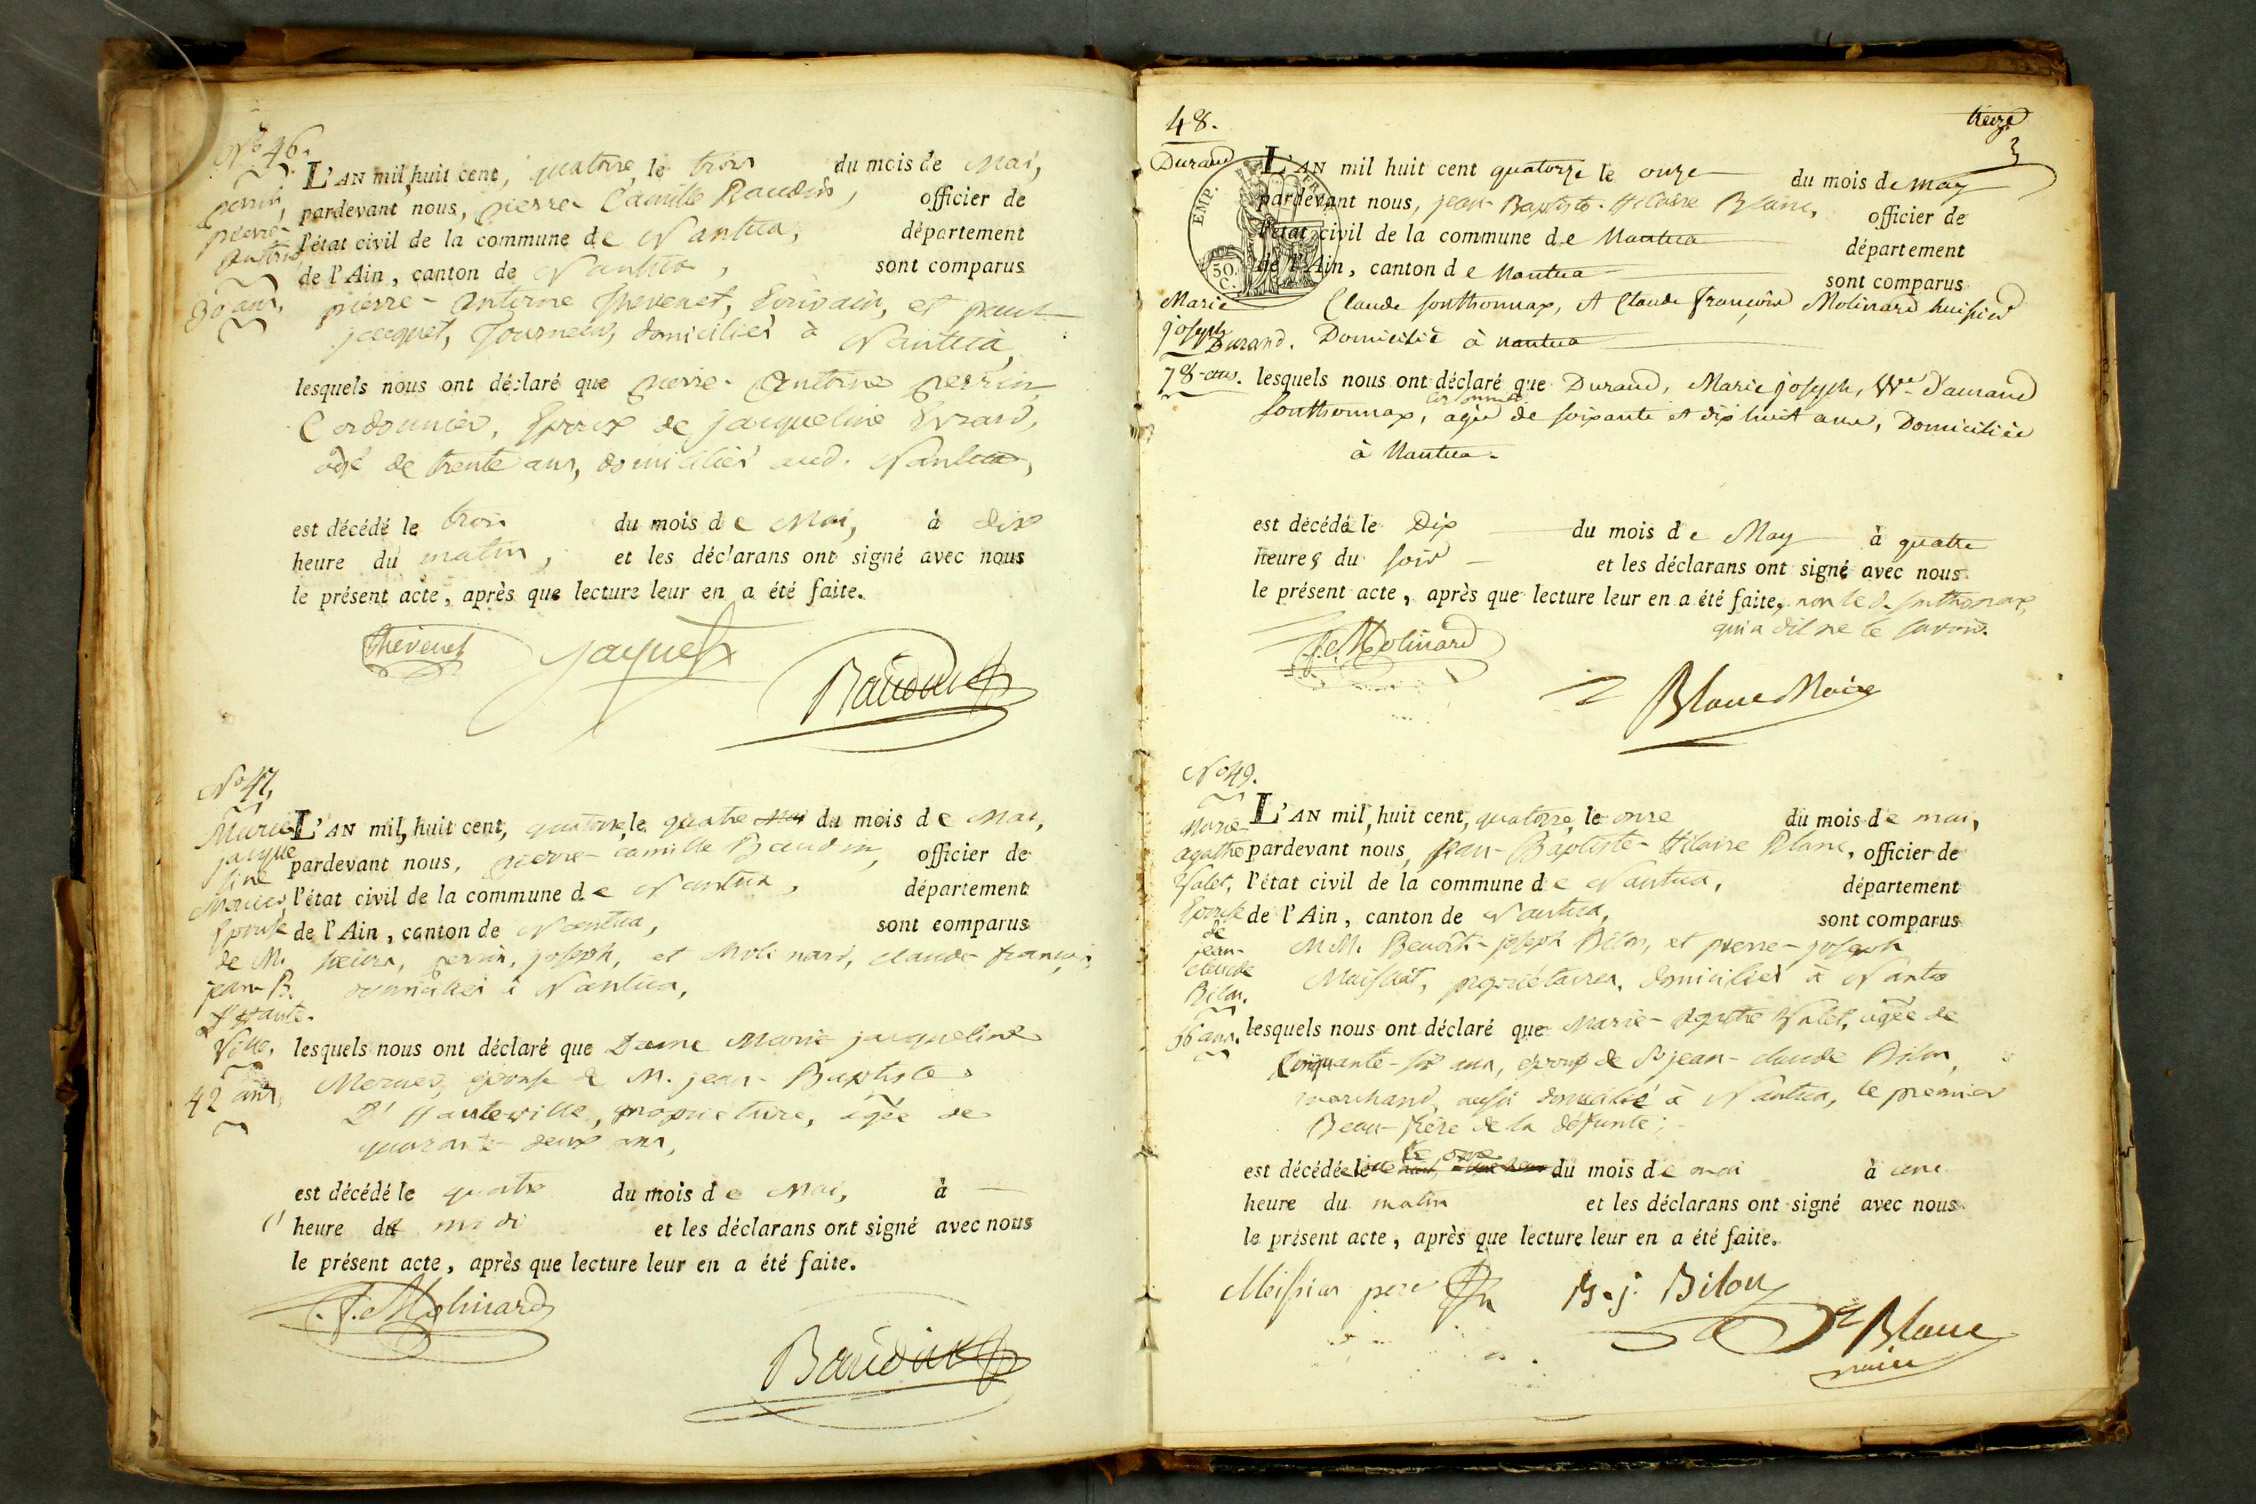 N.º 46.
Perrin,
pierre-
antoine
30 ans,
L'AN mil huit cent, quatorze, le trois du mois de Mai,
pardevant nous, pierre-Camille Baudin, officier de
l'état civil de la commune de Nantua, département
de l'Ain, canton de Nantua, sont comparus
pierre-antoine Thevenet, Ecrivain, et
jacquet, Tourneur, domiciliés à Nantua,
lesquels nous ont déclaré que pierre-antoine perrin,
Cordonnier, Epoux de jacqueline Evrard,
âgé de trente ans, domicilié aud. Nantua,
est décédé le trois du mois de Mai, à dix
heure du matin, et les déclarans ont signé avec nous
le présent acte, après que lecture leur en a été faite.
Thevenet jaquet Baudin
N.º 47,
Marie
jacque
line
Mercier,
Epouse
de M.
jean-B.
d'haute-
Ville,
42 ans,
L'AN mil, huit cent, quatorze, le quatre Mai du mois de Mai,
pardevant nous, pierre-Camille Baudin, officier de
l'état civil de la commune de Nantua, département
de l'Ain, canton de Nantua, sont comparus
sieurs, perrin, joseph, et Molinard, claude-françois,
domiciliés à Nantua,
lesquels nous ont déclaré que Dame Marie jacqueline
Mercier, épouse de M. jean-Baptiste
D'Hauteville, propriétaire, âgée de
quarante-deux ans,
est décédé le quatre du mois de Mai, à —
heure du midi et les déclarans ont signé avec nous
le présent acte, après que lecture leur en a été faite.
C. f. Molinard
Baudin
48. treize
Durand
EMP. FR
50.
C.
Marie
joseph
Durand.
78-ans.
L'AN mil huit cent quatorze le onze du mois de may
pardevant nous, jean-Baptiste-Hilaire Blanc, officier de
l'état civil de la commune de Nantua département
de l'Ain, canton de Nantua sont comparus
Claude Sonthonnax, et Claude françois Molinard huissier
Domicilié à nantua
lesquels nous ont déclaré que Durand, Marie joseph, Vve d'amand
Sonthonnax, cordonnier agée de soixante et dix huit ans, Domiciliée
à Nantua-
est décédé le Dix du mois de May à quatre
heures du soir et les déclarans ont signé avec nous
le présent acte, après que lecture leur en a été faite, non le d. sonthonnax,
qui a dit ne le savoir.
C. f. Molinard
Blanc Maire
N.º 49.
Marie-
agathe
Valet,
Epouse
de
jean-
claude
Bilon,
56 ans,
L'AN mil, huit cent, quatorze, le onze du mois de mai,
pardevant nous, jean-Baptiste-Hilaire Blanc, officier de
l'état civil de la commune de Nantua, département
de l'Ain, canton de Nantua, sont comparus
M.M. Benoit-joseph Bilon, et pierre-joseph
Maissiat, propriétaires, domiciliés à Nantua
lesquels nous ont déclaré que Marie-Agathe Valet, agée de
cinquante-six ans, epouse de Sr jean-claude Bilon,
marchand, aussi domicilié à Nantua, le premier
Beau-frère de la défunte;
est décédée le onze du mois de mai à une
heure du matin et les déclarans ont signé avec nous
le présent acte, après que lecture leur en a été faite.
Meissiat pere B. j. Bilon
Blanc
maire